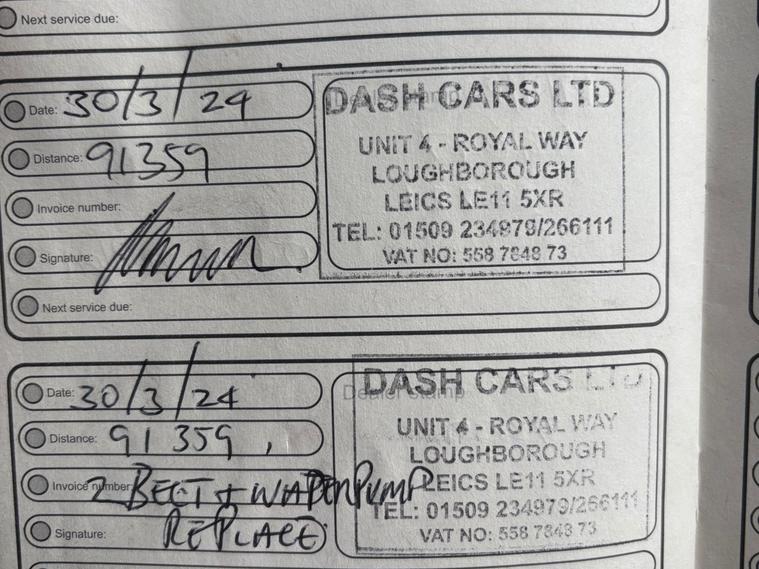 Next service due:
Date: 30/3/24
DASH CARS LTD
Distance: 91359
UNIT 4 - ROYAL WAY
LOUGHBOROUGH
Invoice number:
LEICS LE11 5XR
TEL: 01509 234979/266111
Signature:
VAT NO: 558 7848 73
Next service due:
Date: 30/3/24
Dealer stamp
DASH CARS LTD
Distance: 91 359
UNIT 4 - ROYAL WAY
LOUGHBOROUGH
Invoice number
BELT + WATER PUMP
LEICS LE11 5XR
TEL: 01509 234979/266111
Signature:
REPLACE
VAT NO: 558 7848 73